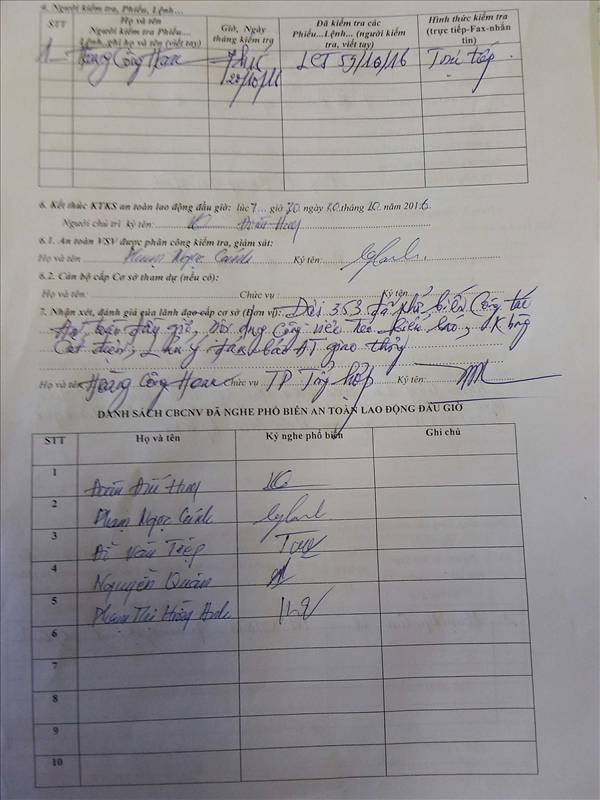 4. Người kiểm tra, Phiếu, Lệnh...
STT
Họ và tên
Người kiểm tra Phiếu....
Lệnh..ghi họ và tên (viết tay)
Giờ, Ngày
tháng kiểm tra
Đã kiểm tra các
Phiếu...Lệnh... (người kiểm
tra, viết tay)
Hình thức kiểm tra
(trực tiếp-Fax-nhắn
tin)
1 Hoàng Công Hoan
LCT 53/10/16
Trực tiếp
6. Kết thúc KTKS an toàn lao động đầu giờ: lúc 7... giờ 30. ngày 20.tháng 10. năm 2016.
Người chủ trì ký tên: Đoàn Đức Huy
6.1. An toàn VSV được phân công kiểm tra, giám sát:
Họ và tên Phạm Ngọc Cảnh Ký tên:
6.2. Cán bộ cấp Cơ sở tham dự (nếu có):
Họ và tên: Chức vụ: Ký tên:
7. Nhận xét, đánh giá của lãnh đạo cấp cơ sở (Đơn vị): Đội 353 đã phổ biến công tác
An toàn đầy đủ, nội dung công việc leo kiểu cao, không
cắt điện, Lưu ý đảm bảo AT giao thông
Họ và tên Hoàng Công Hoan Chức vụ TP Tổng hợp Ký tên:
DANH SÁCH CBCNV ĐÃ NGHE PHỔ BIẾN AN TOÀN LAO ĐỘNG ĐẦU GIỜ
STT Họ và tên Ký nghe phổ biến Ghi chú
1 Đoàn Đức Huy
2 Phạm Ngọc Cảnh
3 Văn Tiệp
4 Nguyễn Quân
5 Phạm Thị Hồng Anh
6
7
8
9
10